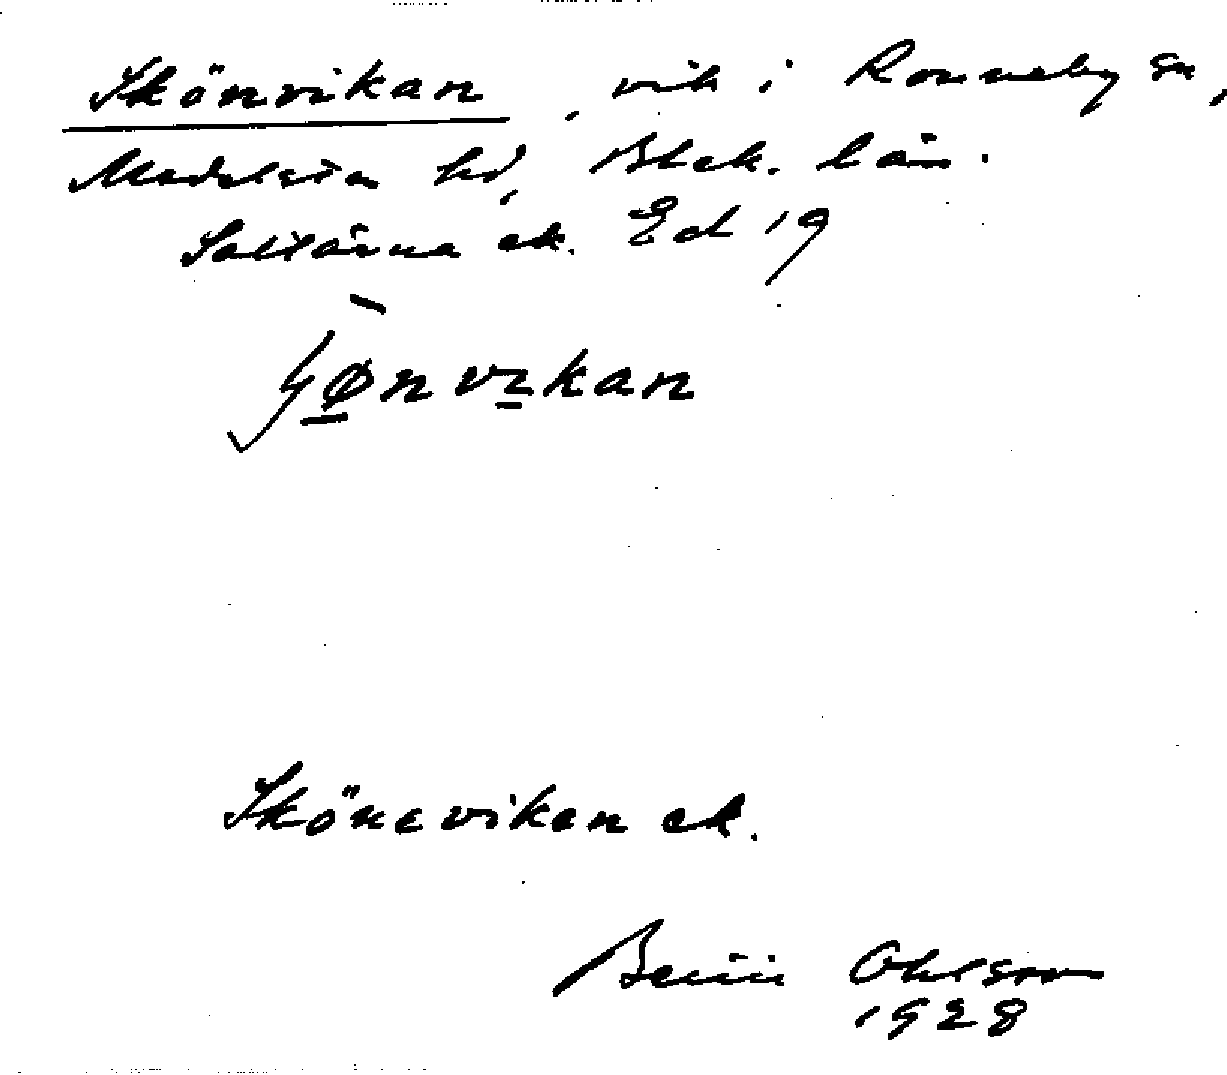 Skönvikan, vik i Ronneby sn,
Medelsta hd, Blek. län.
Saltärna ek. Ed 19
ʃø̀nvikan
Sköneviken ek.
Bertil Ohlsson
1928